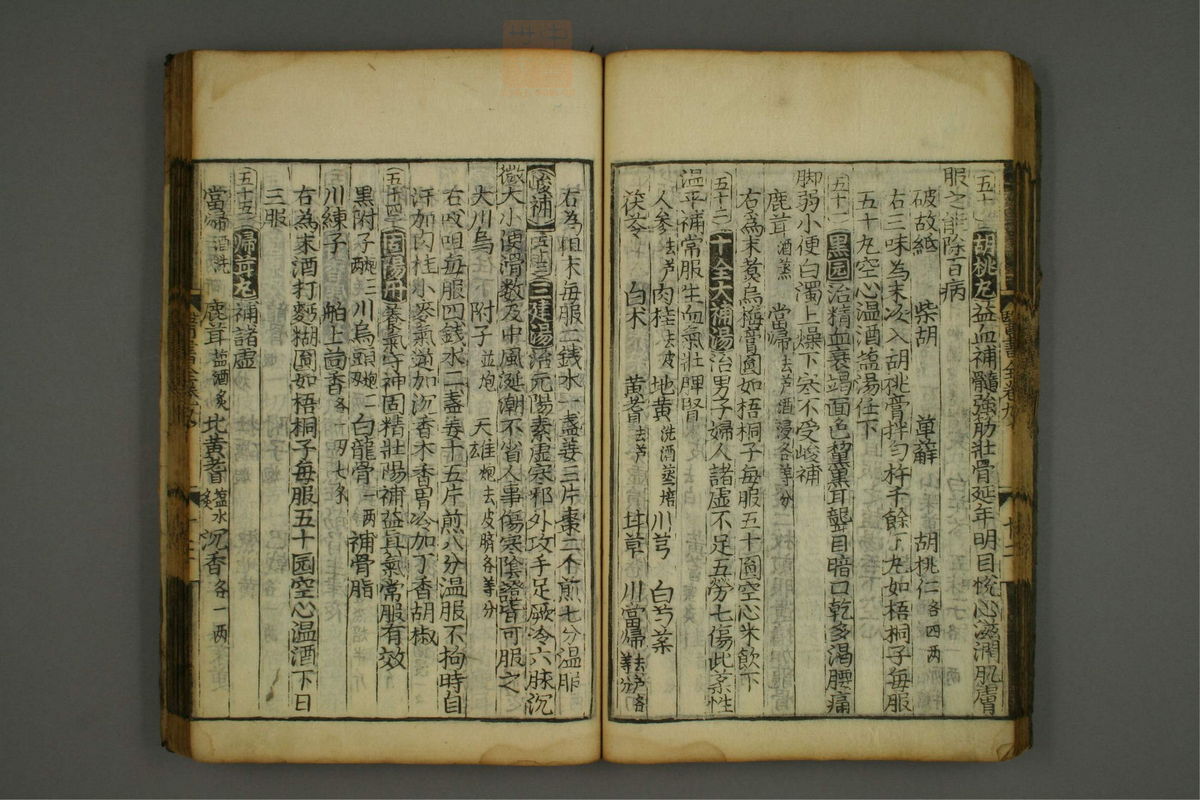 五十一 胡桃丸 益血補髓強筋壯骨延年明目悅心滋潤肌膚
服之能除百病
破故紙 柴胡 萆薢 胡桃仁各四兩
右三味為末次入胡桃膏拌勻杵千餘下丸如梧桐子每服
五十丸空心溫酒鹽湯任下
五十二 黑圓 治精血衰竭面色黧黑耳聾目暗口乾多渴腰痛
脚弱小便白濁上燥下寒不受峻補
鹿茸酒蒸 當歸去芦酒浸各等分
右為末煑烏梅膏圓如梧桐子每服五十圓空心米飲下
五十三 十全大補湯 治男子婦人諸虛不足五勞七傷此藥性
溫平補常服生血氣壯脾腎
人參去芦 肉桂去皮 地黃洗酒蒸焙 川芎 白芍藥
茯苓 白术 黃耆去芦 甘草 川當歸去芦各等分
右為咀末每服二錢水一盞姜三片棗二个煎七分溫服
峻補 三建湯 治元陽素虛寒邪外攻手足厥冷六脉沉
微大小便滑數及中風涎潮不省人事傷寒陰證皆可服之
大川烏 附子並炮 天雄炮去皮臍各等分
右㕮咀每服四錢水二盞姜十五片煎八分溫服不拘時自
汗加肉桂小麥氣逆加沉香木香胃冷加丁香胡椒
五十四 固陽丹 養氣守神固精壯陽補益真氣常服有效
黑附子炮三兩 川烏頭炮二兩 白龍骨一兩 補骨脂
川練子 舶上茴香各一兩七錢
右為末酒打麪糊圓如梧桐子每服五十圓空心溫酒下日
三服
五十五 歸茸丸 補諸虛
當歸酒洗 鹿茸鹽酒炙 北黃耆鹽水炙 沉香各一兩